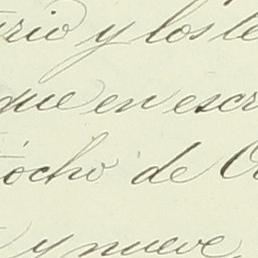 y los
que en escr
ocho de O
y nueve